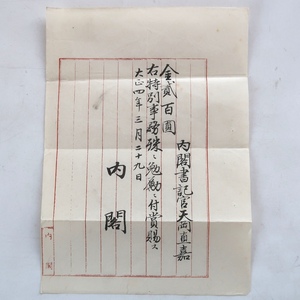 内閣書記官天岡直嘉
金貳百圓
右特別事務殊ニ勉勵ニ付賞賜ス
大正四年三月二十九日
内閣
内閣